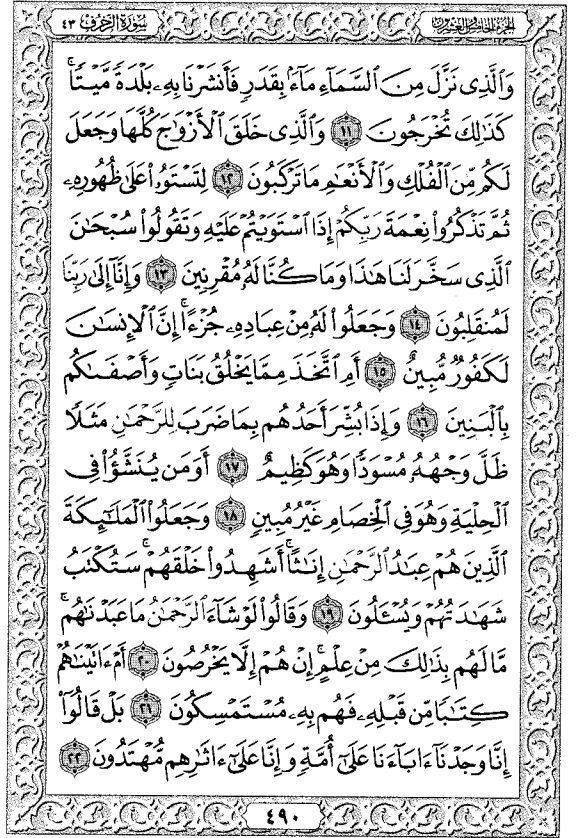 الجزء الخامس والعشرون
سورة الزخرف ٤٣
وَٱلَّذِى نَزَّلَ مِنَ ٱلسَّمَآءِ مَآءًۢ بِقَدَرٍ فَأَنشَرْنَا بِهِۦ بَلْدَةً مَّيْتًا ۚ
كَذَٰلِكَ تُخْرَجُونَ ١١ وَٱلَّذِى خَلَقَ ٱلْأَزْوَٰجَ كُلَّهَا وَجَعَلَ
لَكُم مِّنَ ٱلْفُلْكِ وَٱلْأَنْعَٰمِ مَا تَرْكَبُونَ ١٢ لِتَسْتَوُۥا۟ عَلَىٰ ظُهُورِهِۦ
ثُمَّ تَذْكُرُوا۟ نِعْمَةَ رَبِّكُمْ إِذَا ٱسْتَوَيْتُمْ عَلَيْهِ وَتَقُولُوا۟ سُبْحَٰنَ
ٱلَّذِى سَخَّرَ لَنَا هَٰذَا وَمَا كُنَّا لَهُۥ مُقْرِنِينَ ١٣ وَإِنَّآ إِلَىٰ رَبِّنَا
لَمُنقَلِبُونَ ١٤ وَجَعَلُوا۟ لَهُۥ مِنْ عِبَادِهِۦ جُزْءًا ۚ إِنَّ ٱلْإِنسَٰنَ
لَكَفُورٌ مُّبِينٌ ١٥ أَمِ ٱتَّخَذَ مِمَّا يَخْلُقُ بَنَاتٍ وَأَصْفَىٰكُم
بِٱلْبَنِينَ ١٦ وَإِذَا بُشِّرَ أَحَدُهُم بِمَا ضَرَبَ لِلرَّحْمَٰنِ مَثَلًا
ظَلَّ وَجْهُهُۥ مُسْوَدًّا وَهُوَ كَظِيمٌ ١٧ أَوَمَن يُنَشَّؤُا۟ فِى
ٱلْحِلْيَةِ وَهُوَ فِى ٱلْخِصَامِ غَيْرُ مُبِينٍ ١٨ وَجَعَلُوا۟ ٱلْمَلَٰٓئِكَةَ
ٱلَّذِينَ هُمْ عِبَٰدُ ٱلرَّحْمَٰنِ إِنَٰثًا ۚ أَشَهِدُوا۟ خَلْقَهُمْ ۚ سَتُكْتَبُ
شَهَٰدَتُهُمْ وَيُسْـَٔلُونَ ١٩ وَقَالُوا۟ لَوْ شَآءَ ٱلرَّحْمَٰنُ مَا عَبَدْنَٰهُم ۗ
مَّا لَهُم بِذَٰلِكَ مِنْ عِلْمٍ ۖ إِنْ هُمْ إِلَّا يَخْرُصُونَ ٢٠ أَمْ ءَاتَيْنَٰهُمْ
كِتَٰبًا مِّن قَبْلِهِۦ فَهُم بِهِۦ مُسْتَمْسِكُونَ ٢١ بَلْ قَالُوٓا۟
إِنَّا وَجَدْنَآ ءَابَآءَنَا عَلَىٰٓ أُمَّةٍ وَإِنَّا عَلَىٰٓ ءَاثَٰرِهِم مُّهْتَدُونَ ٢٢
٤٩٠